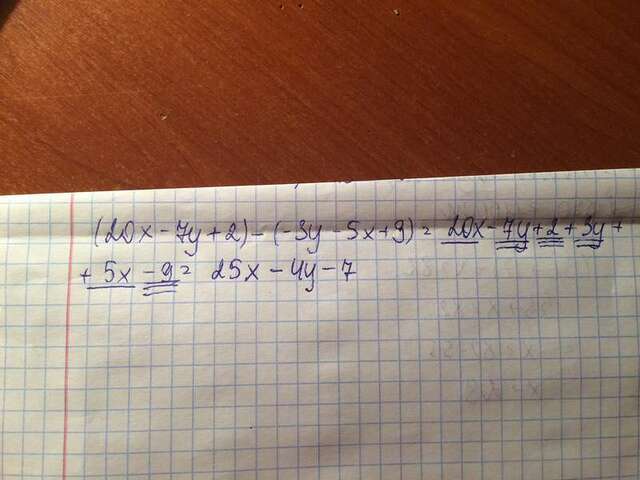 (20x-7y+2)-(-3y-5x+9)= 20x-7y+2+3y+
+5x-9= 25x-4y-7